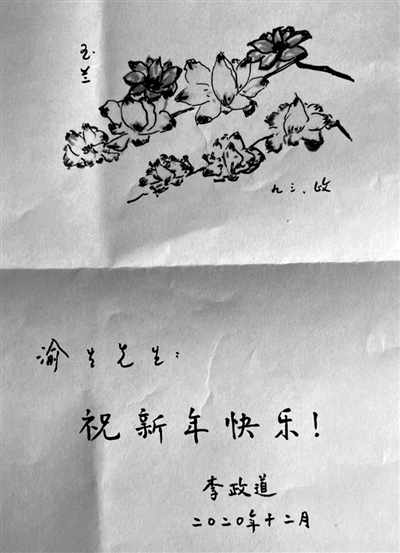 玉兰
九三、政
渝生先生:
祝新年快乐!
李政道
二〇二〇年十二月